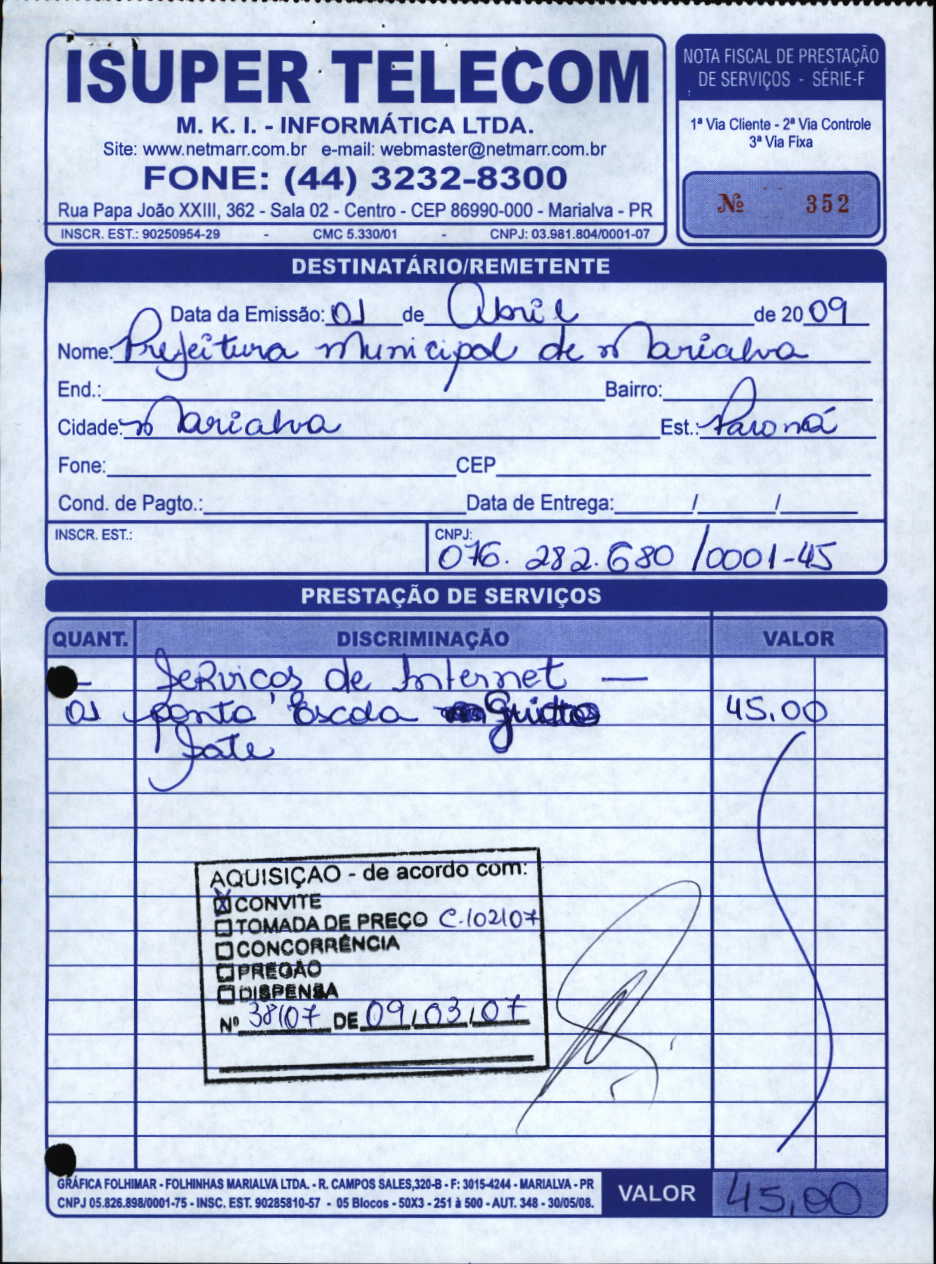 ISUPER TELECOM
M. K. I. - INFORMÁTICA LTDA.
Site: www.netmarr.com.br e-mail: webmaster@netmarr.com.br
FONE: (44) 3232-8300
Rua Papa João XXIII, 362 - Sala 02 - Centro - CEP 86990-000 - Marialva - PR
INSCR. EST.: 90250954-29 - CMC 5.330/01 - CNPJ: 03.981.804/0001-07
NOTA FISCAL DE PRESTAÇÃO
DE SERVIÇOS - SÉRIE-F
1ª Via Cliente - 2ª Via Controle
3ª Via Fixa
Nº 352
DESTINATÁRIO/REMETENTE
Data da Emissão: 01 de Abril de 2009
Nome: Prefeitura Municipal de Marialva
End.: Bairro:
Cidade: Marialva Est.: Paraná
Fone: CEP
Cond. de Pagto.: Data de Entrega: / /
INSCR. EST.: CNPJ:
076.282.680/0001-45
PRESTAÇÃO DE SERVIÇOS
QUANT. DISCRIMINAÇÃO VALOR
- Serviços de Internet —
01 ponto Escola 45,00
AQUISIÇÃO - de acordo com:
CONVITE
TOMADA DE PREÇO C.102107
CONCORRÊNCIA
PREGÃO
DISPENSA
Nº 38/07 DE 09/03/07
GRÁFICA FOLHIMAR - FOLHINHAS MARIALVA LTDA. - R. CAMPOS SALES,320-B - F: 3015-4244 - MARIALVA - PR
CNPJ 05.826.898/0001-75 - INSC. EST. 90285810-57 - 05 Blocos - 50X3 - 251 à 500 - AUT. 348 - 30/05/08.
VALOR 45,00